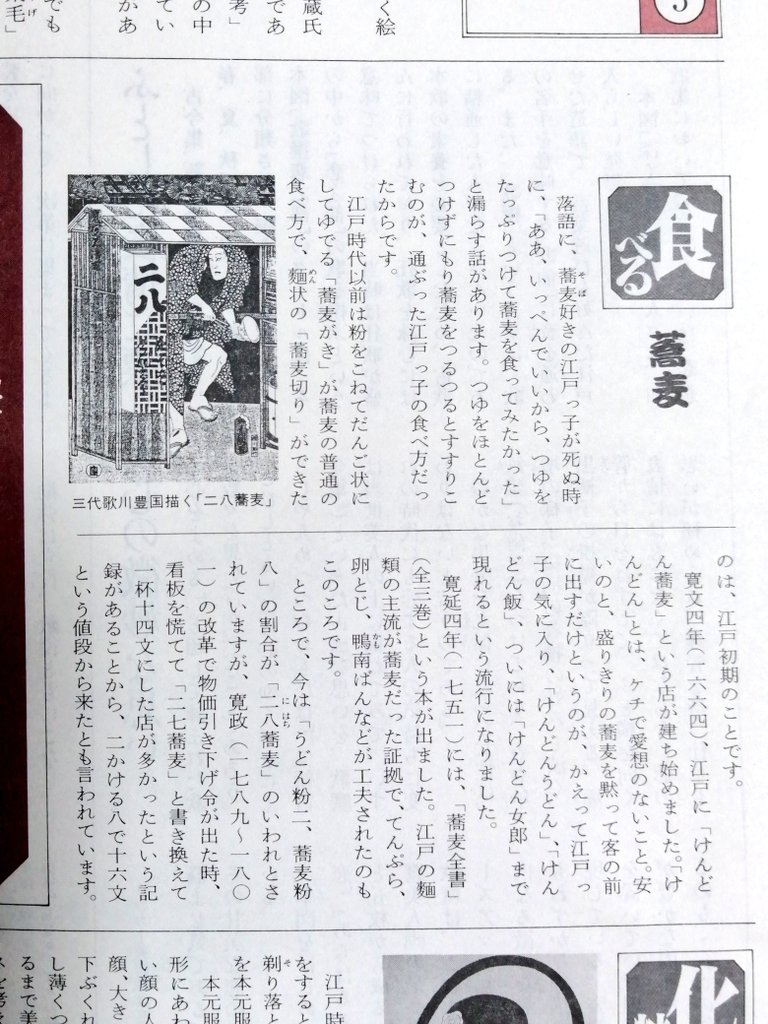 5
く絵
蔵氏
であ
考」
の中
てい
があ
でも
毛」
食べる
蕎麦
落語に、蕎麦好きの江戸っ子が死ぬ時
に、「ああ、いっぺんでいいから、つゆを
たっぷりつけて蕎麦を食ってみたかった」
と漏らす話があります。つゆをほとんど
つけずにもり蕎麦をつるつるとすすりこ
むのが、通ぶった江戸っ子の食べ方だっ
たからです。
江戸時代以前は粉をこねてだんご状に
してゆでる「蕎麦がき」が蕎麦の普通の
食べ方で、麺状の「蕎麦切り」ができた
二八
三代歌川豊国描く「二八蕎麦」
のは、江戸初期のことです。
寛文四年(一六六四)、江戸に「けんど
ん蕎麦」という店が建ち始めました。「け
んどん」とは、ケチで愛想のないこと。安
いのと、盛りきりの蕎麦を黙って客の前
に出すだけというのが、かえって江戸っ
子の気に入り、「けんどんうどん」、「けん
どん飯」、ついには「けんどん女郎」まで
現れるという流行になりました。
寛延四年(一七五一)には、「蕎麦全書」
(全三巻)という本が出ました。江戸の麺
類の主流が蕎麦だった証拠で、てんぷら、
卵とじ、鴨南ばんなどが工夫されたのも
このころです。
ところで、今は「うどん粉二、蕎麦粉
八」の割合が「二八蕎麦」のいわれとさ
れていますが、寛政(一七八九〜一八〇
一)の改革で物価引き下げ令が出た時、
看板を慌てて「二七蕎麦」と書き換えて
一杯十四文にした店が多かったという記
録があることから、二かける八で十六文
という値段から来たとも言われています。
化
江戸時
をすると
剃り落と
を本元服
本元服
形にあわ
い顔の人
顔、大き
下ぶくれ
し薄くつ
るまで美